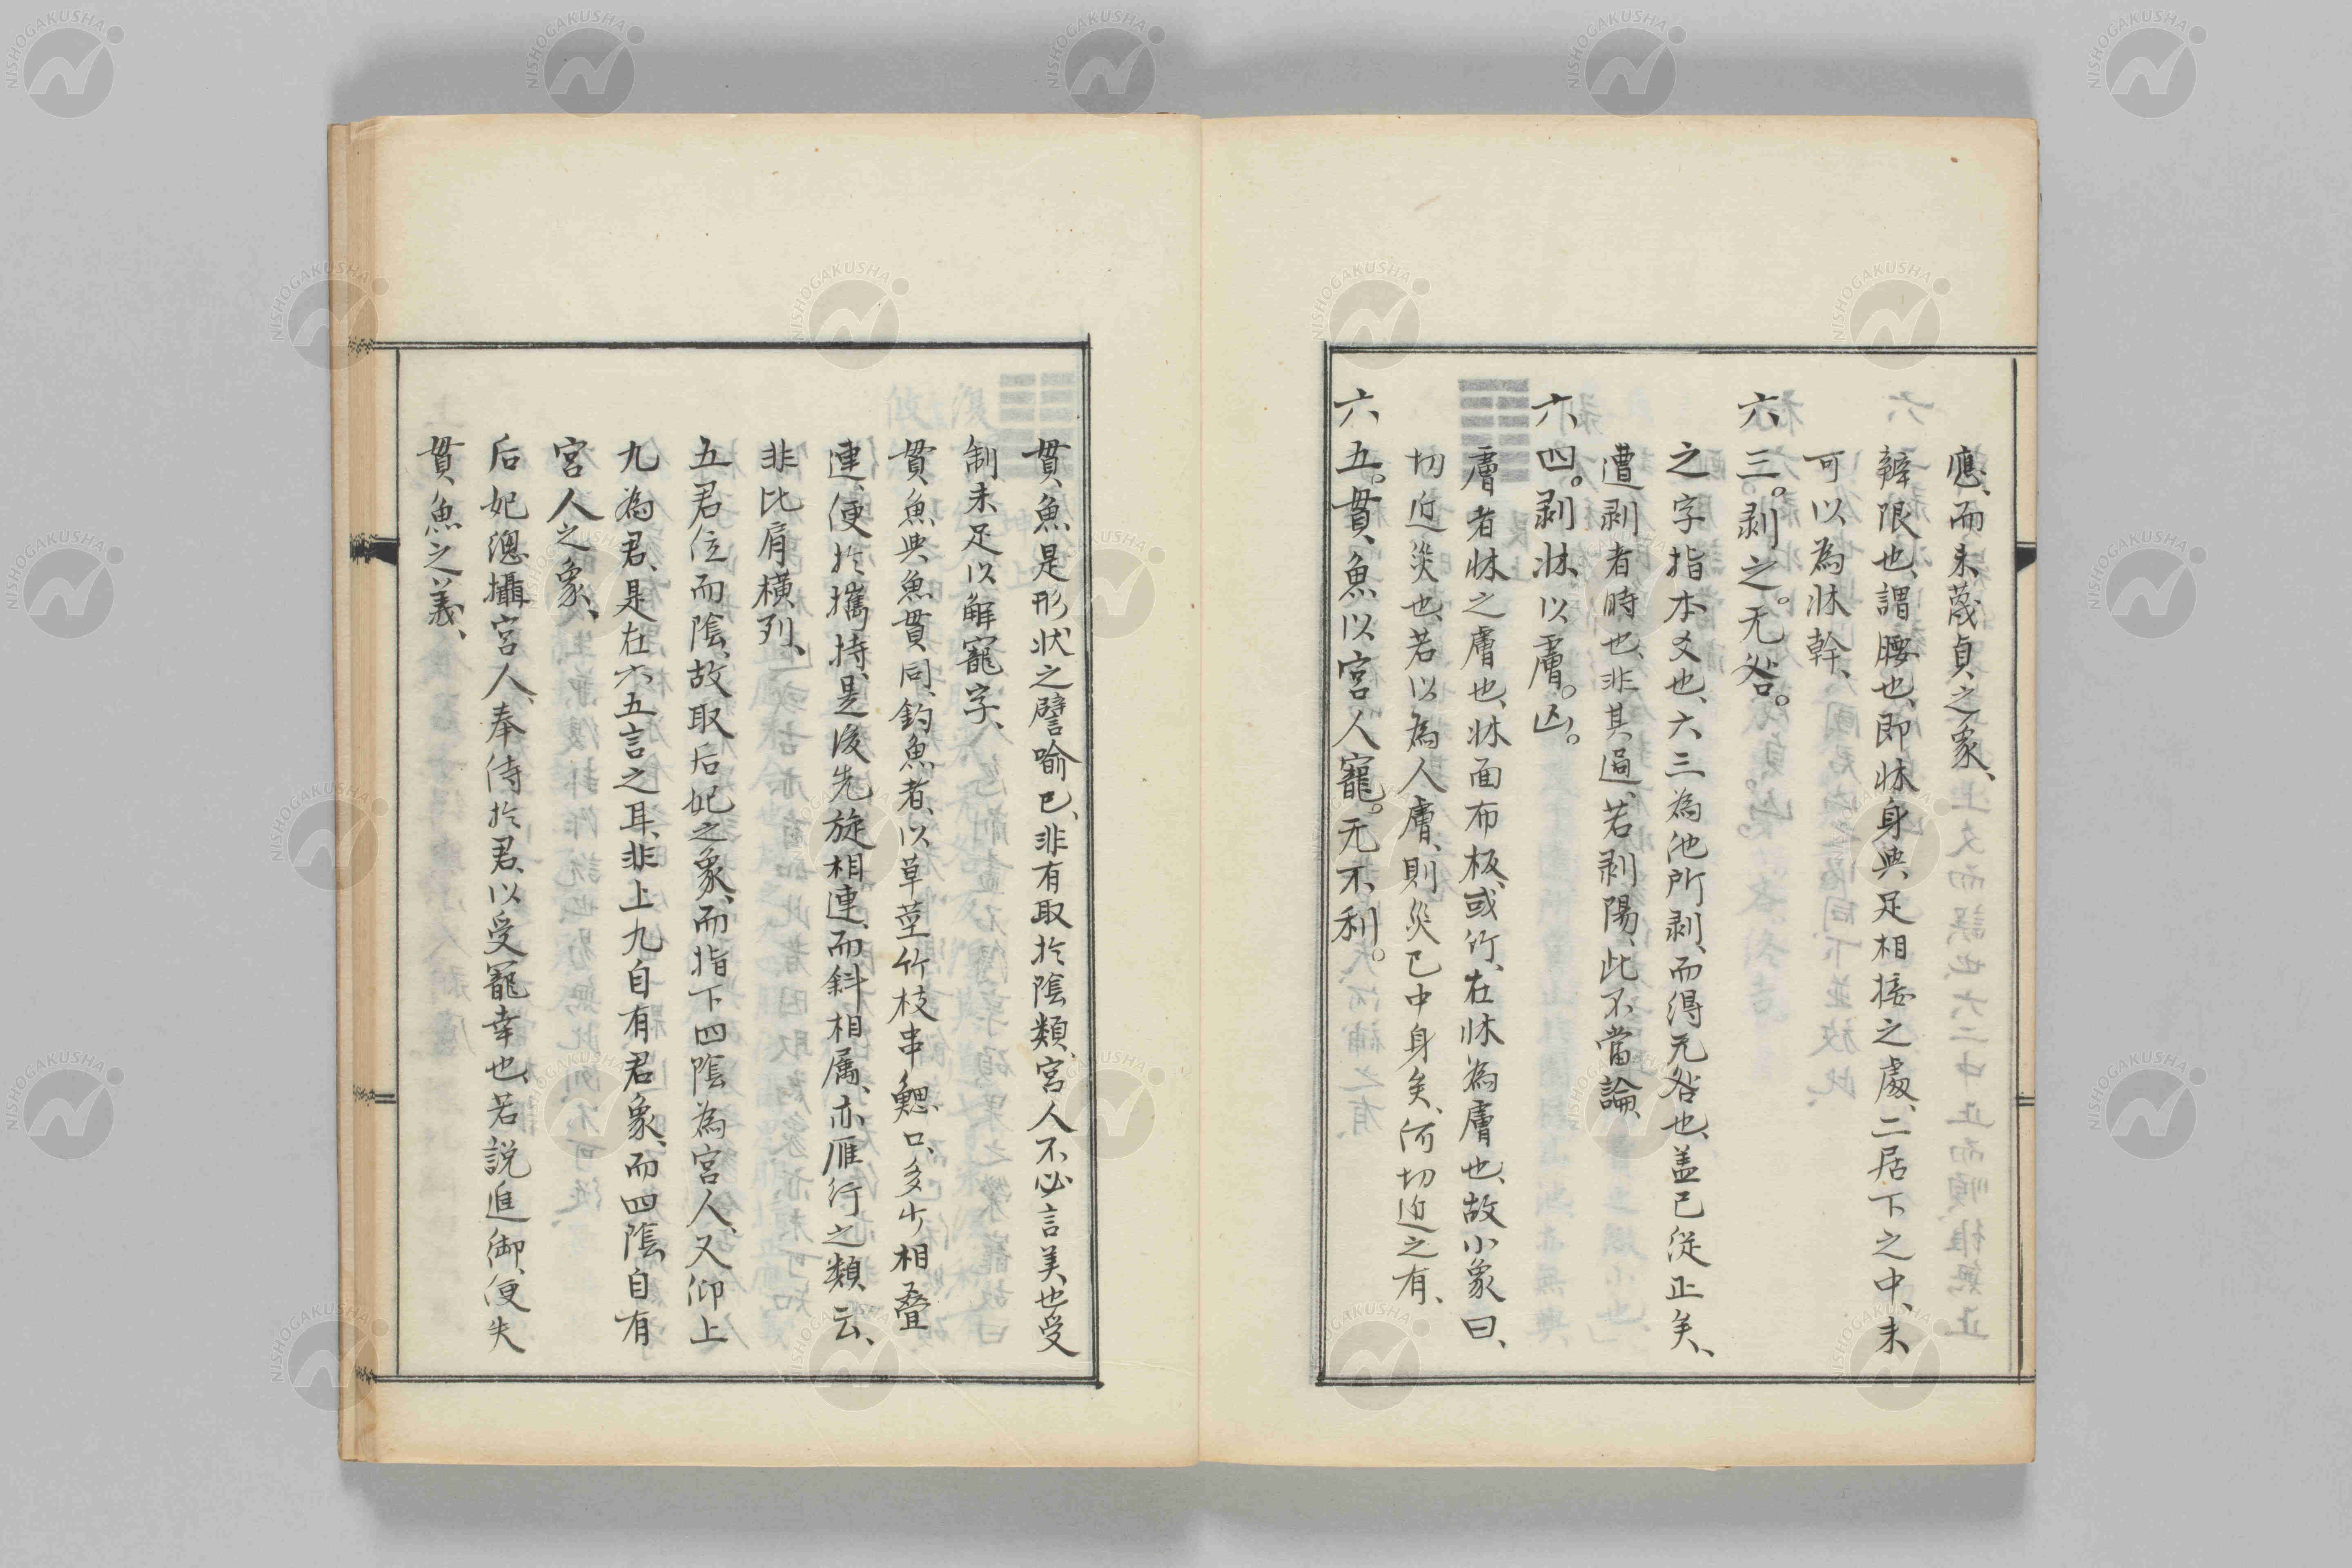 應、而未蔑貞之象、
辨限也、謂腰也、即牀身與足相接之處、二居下之中、未
可以為牀幹、
六三。剥之。无咎。
之字指本爻也、六三為他所剥、而得无咎也、盖已從正矣、
遭剥者時也、非其過、若剥陽、此不當論、
六四。剥牀以膚。凶。
膚者牀之膚也、牀面布板、或竹、在牀為膚也、故小象曰、
切近災也、若以為人膚、則災已中身矣、何切近之有、
六五。貫魚以宮人寵。无不利。
貫魚是形状之譬喻已、非有取於陰類、宮人不必言美也受
制、未足以解寵字、
貫魚與魚貫同、釣魚者、以草莖竹枝串鰓口、多少相疊
連、便於攜持、是後先旋相連、而斜相属、亦雁行之類云、
非比肩横列、
五君位而陰、故取后妃之象、而指下四陰為宮人、又仰上
九為君、是在六五言之耳、非上九自有君象、而四陰自有
宮人之象、
后妃總攝宮人、奉侍於君、以受寵幸也、若説進御、便失
貫魚之義、
NISHOGAKUSHA